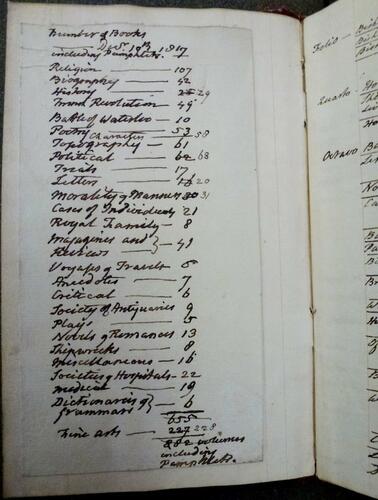 Number of Books
Dec 10th 1817
including Pamphlets.
Religion — 107
Biography — 42
History — 25 29
French Revolution — 49
Battle of Waterloo — 10
Poetry — 53 58
Characters
Topography — 61
Political — 62 68
Trials — 17
Letters — 20
Morality & Manners 30 31
Cases of Individuals 21
Royal Family — 8
Magazines and
Reviews } — 49
Voyages & Travels 5
Anecdotes — 7
Critical — 6
Society of Antiquaries 9
Plays — 5
Novels & Romances 13
Shipwrecks — 8
Miscellaneous — 16
Societies & Hospitals — 22
Medical — 19
Dictionaries &
Grammars } — 6
655
Fine arts — 227 228
882 volumes
including
Pamphlets.
Folio —
Quarto —
Octavo